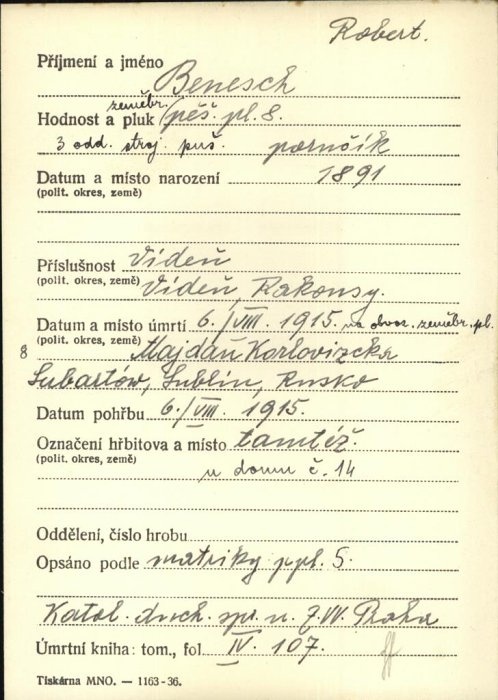 Robert.
Příjmení a jméno
Benesch
zeměbr.
Hodnost a pluk pěš. pl. 8.
3 odd. stroj. puš. poručík
Datum a místo narození 1891
(polit. okres, země)
Příslušnost Vídeň
(polit. okres, země) Vídeň, Rakousy.
Datum a místo úmrtí 6./VIII. 1915. na obvaz. zeměbr. pl.
(polit. okres, země)
8 Majdań Kozlovizcka
Lubartów, Lublin, Rusko
Datum pohřbu 6./VIII. 1915.
Označení hřbitova a místo tamtéž.
(polit. okres, země)
u domu č. 14
Oddělení, číslo hrobu
Opsáno podle matriky ppl. 5.
Katol. duch. spr. u Z.VV. Praha
Úmrtní kniha: tom., fol. IV. 107.
Tiskárna MNO. — 1163-36.